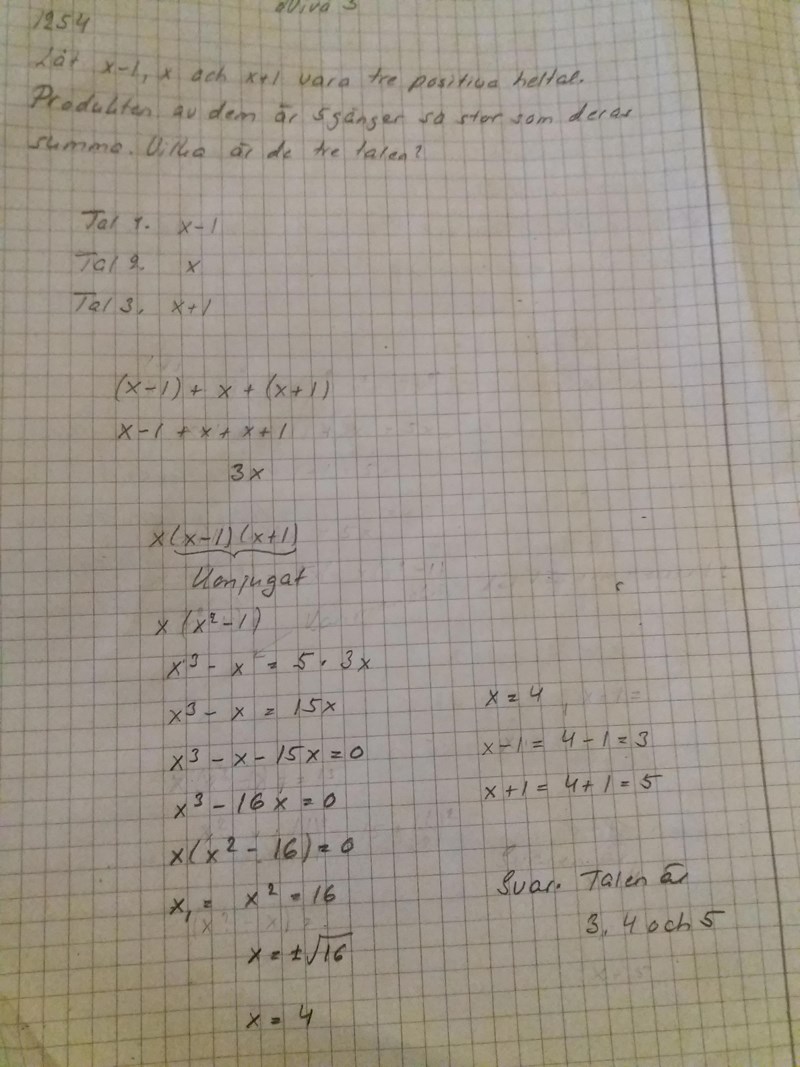 1254
Nivå 3
Låt x-1, x och x+1 vara tre positiva heltal.
Produkten av dem är 5gånger så stor som deras
summa. Vilka är de tre talen?
Tal 1. x-1
Tal 2. x
Tal 3. x+1
(x-1) + x + (x+1)
x-1 + x + x+1
3x
x(x-1)(x+1)
Konjugat
x(x²-1)
x³ - x = 5 · 3x
x³ - x = 15x
x³ - x - 15x = 0
x³ - 16x = 0
x(x² - 16) = 0
x₁ = x² = 16
x = ±√16
x = 4
x = 4
x-1 = 4-1 = 3
x+1 = 4+1 = 5
Svar. Talen är
3, 4 och 5